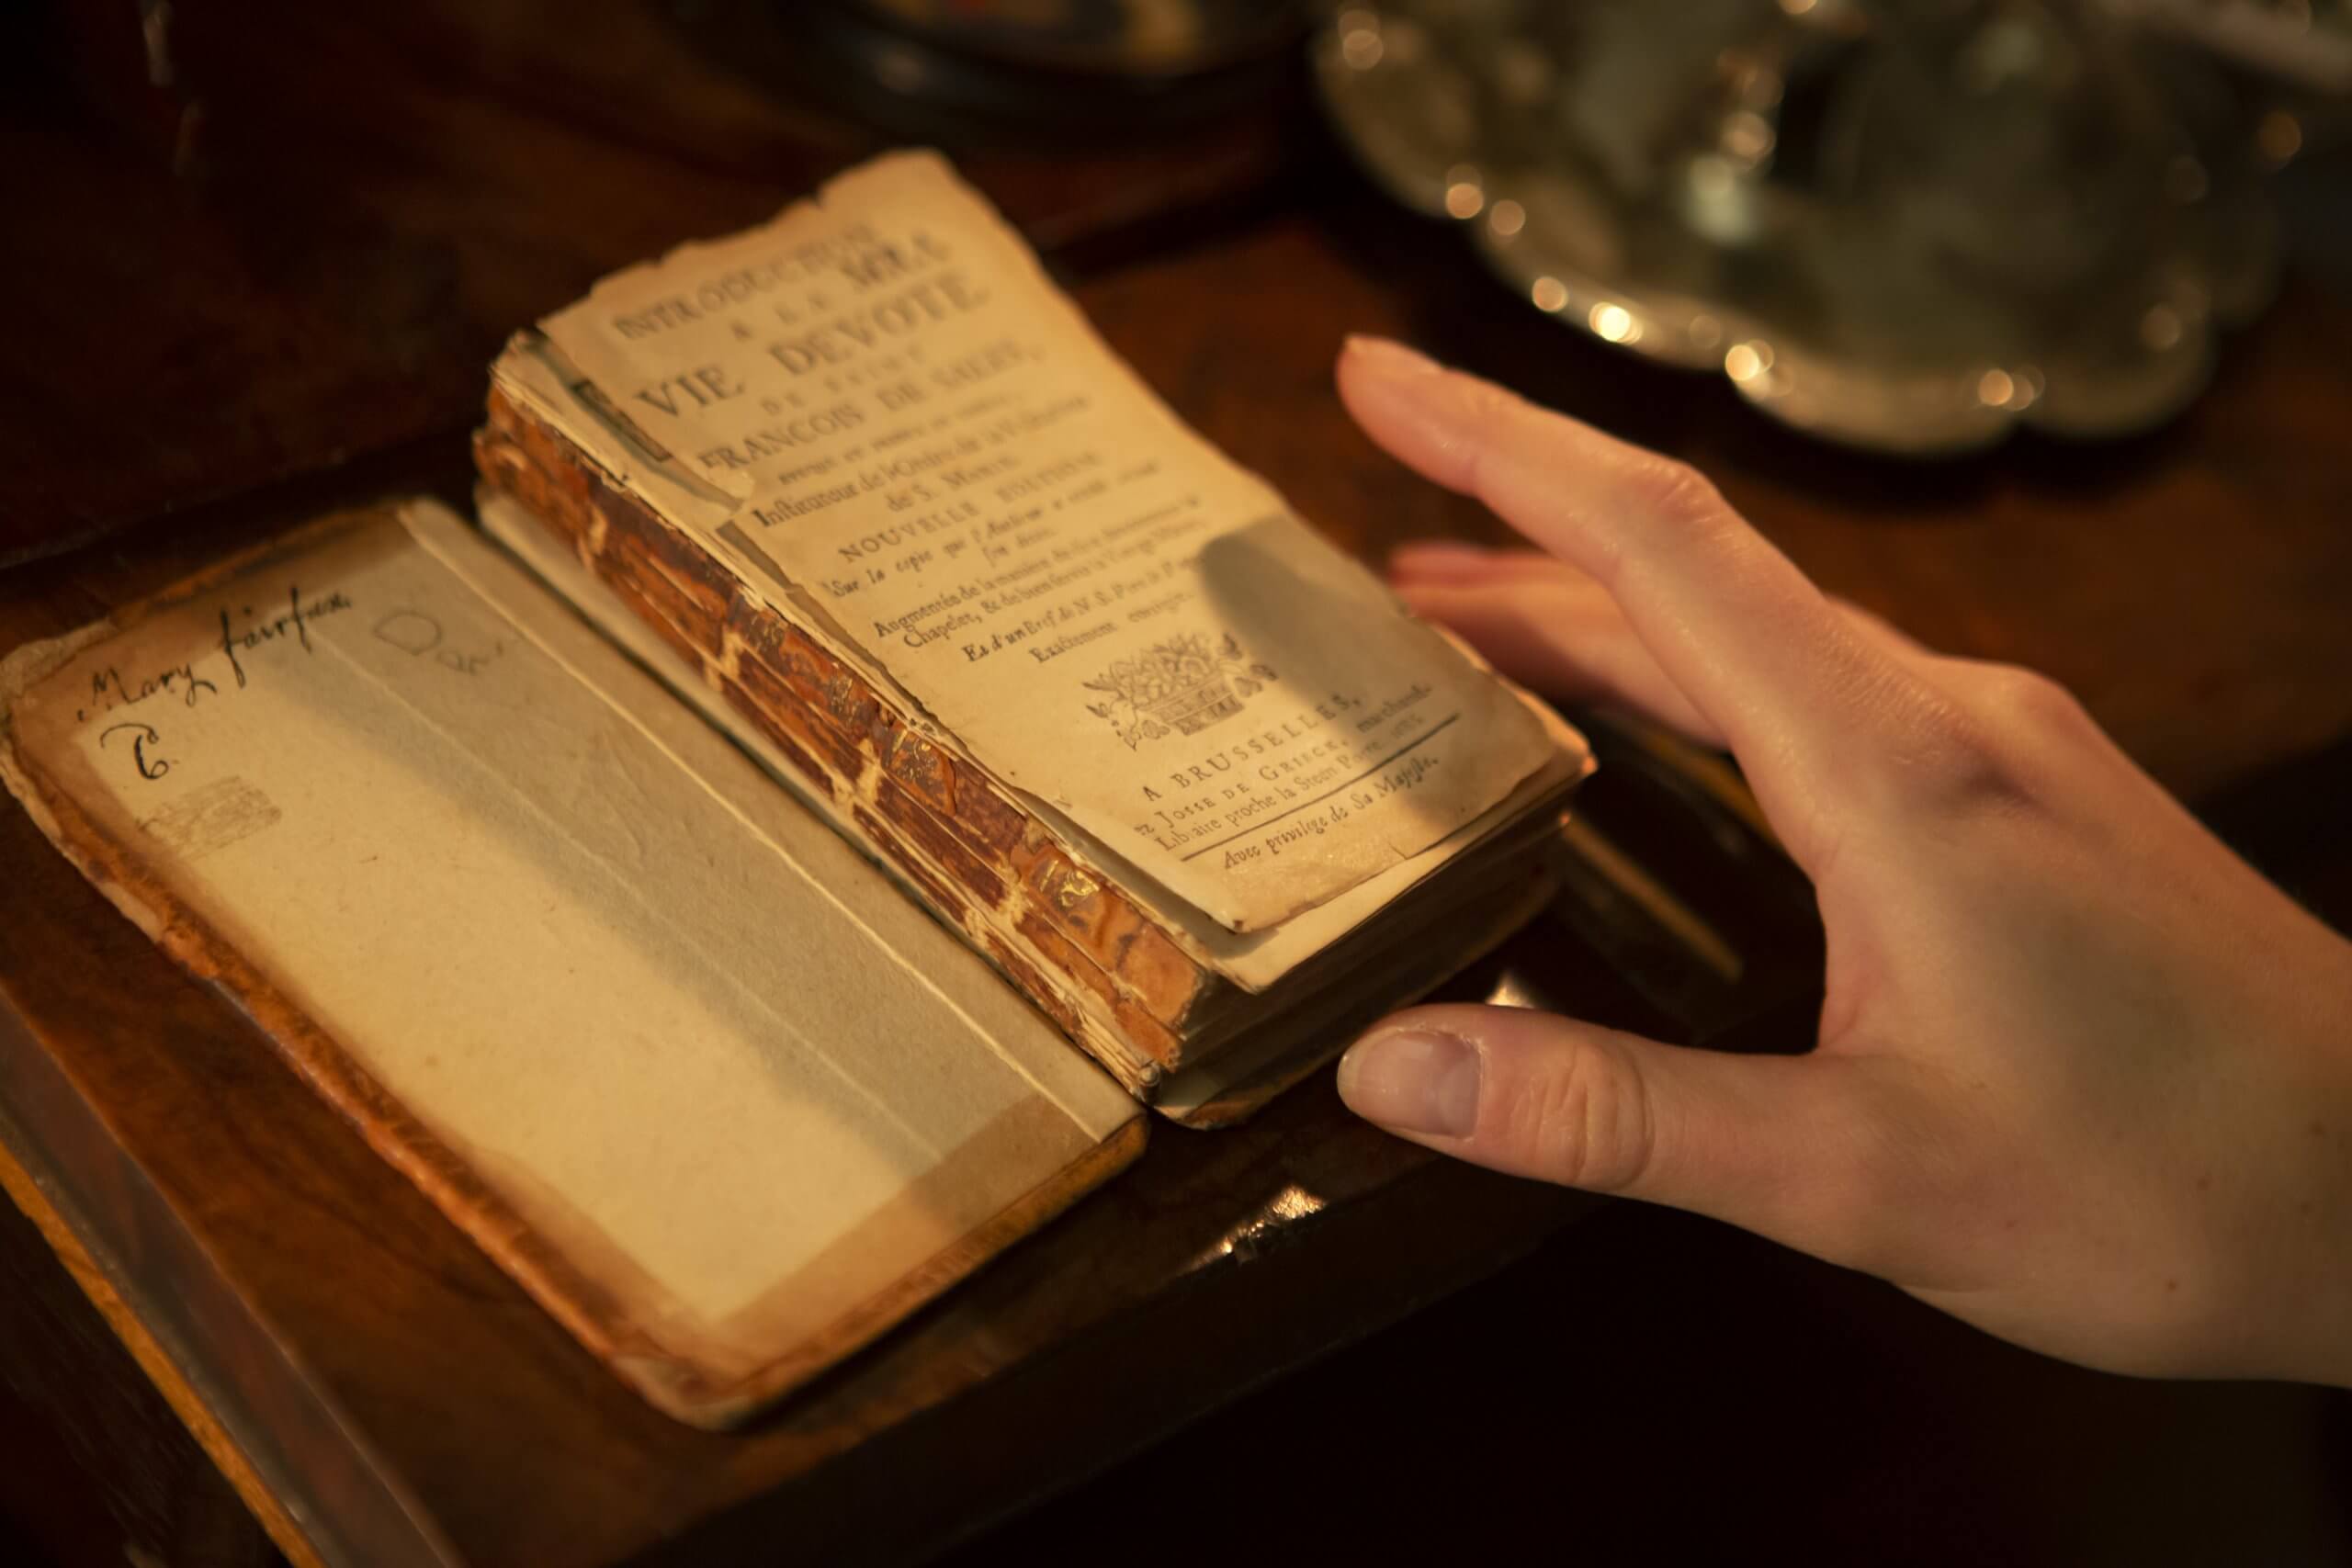 Mary fairfax.
INTRODUCTION
A LA
VIE DEVOTE
DE SAINT
FRANÇOIS DE SALES,
Instituteur de l'Ordre de la Visitation
de S. Marie.
NOUVELLE EDITION
Sur la copie que l'Autheur a
Augmentée de la maniere de dire
Chapelet, & de bien servir la Vierge Marie,
Et d'un Bref de N. S. Pere le Pape
Exactement corrigée.
A BRUSSELLES,
ez JOSSE DE GRIECK, marchand.
Libraire proche la Steen Porte
Avec privilége de Sa Majesté.